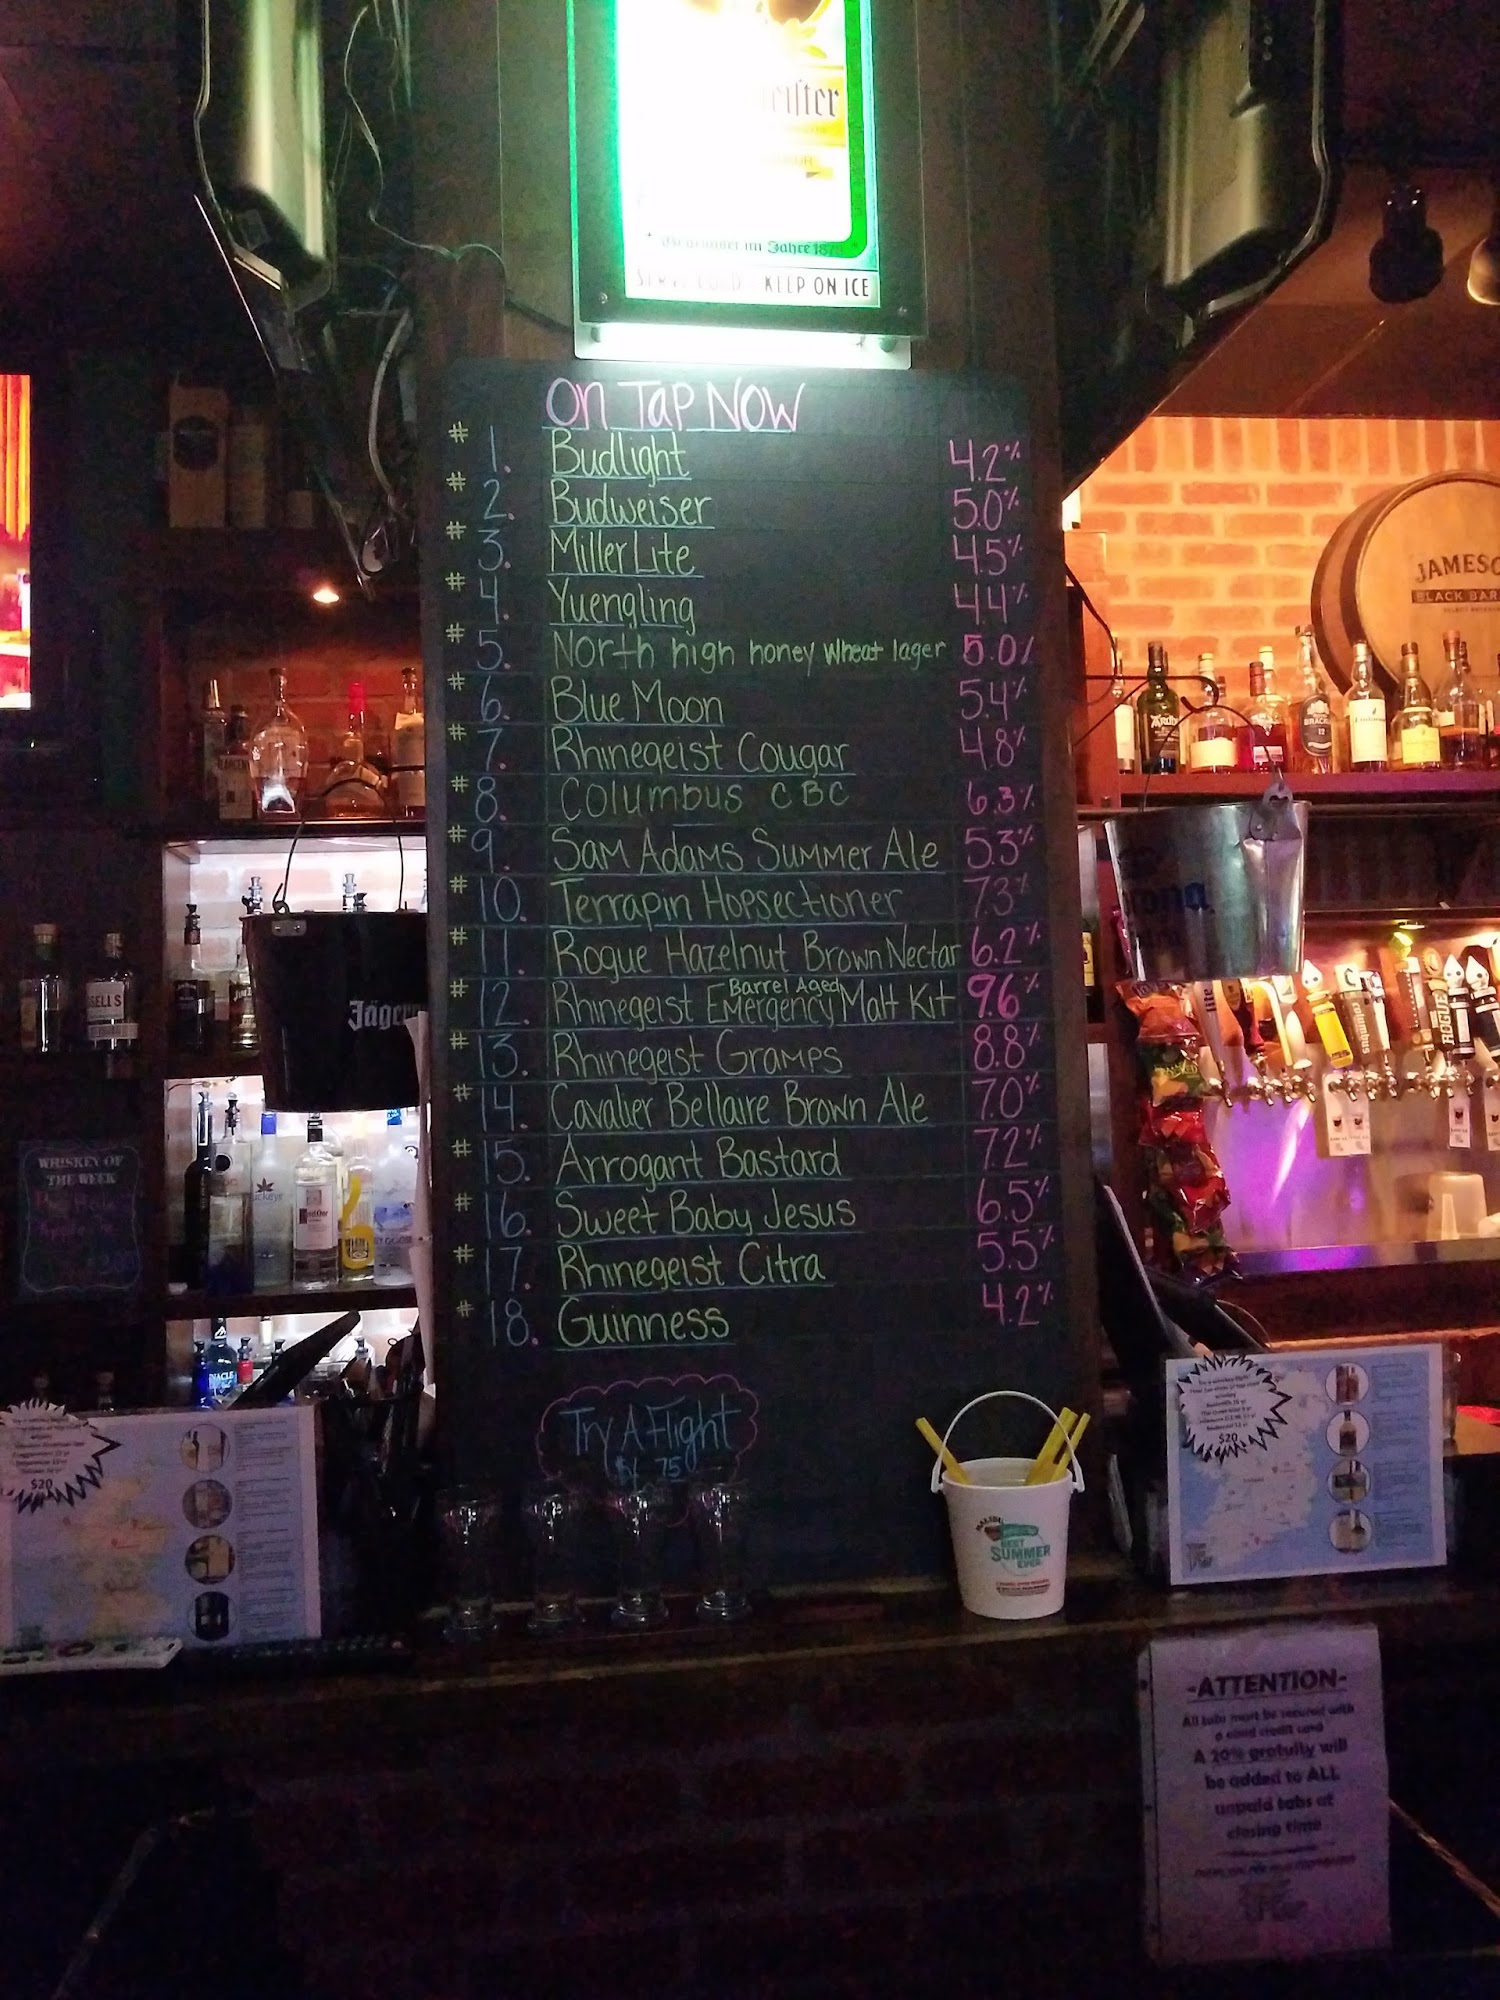 eister
Gegründet im Jahre 187
SERVE COLD - KEEP ON ICE
On Tap NOW
# 1. Budlight 4.2%
# 2. Budweiser 5.0%
# 3. Miller Lite 4.5%
# 4. Yuengling 4.4%
# 5. North high honey wheat lager 5.0%
# 6. Blue Moon 5.4%
# 7. Rhinegeist Cougar 4.8%
# 8. Columbus CBC 6.3%
# 9. Sam Adams Summer Ale 5.3%
# 10. Terrapin Hopsectioner 7.3%
# 11. Rogue Hazelnut Brown Nectar 6.2%
# 12. Rhinegeist Barrel Aged Emergency Malt Kit 9.6%
# 13. Rhinegeist Gramps 8.8%
# 14. Cavalier Bellaire Brown Ale 7.0%
# 15. Arrogant Bastard 7.2%
# 16. Sweet Baby Jesus 6.5%
# 17. Rhinegeist Citra 5.5%
# 18. Guinness 4.2%
Try A Flight
75
JAMESO
BLACK BAR
rona
Jäger
SELLS
WHISKEY OF
THE WEEK
NACLE
Lite
Columbus
ROGUE
$20
$20
MALIBU
BEST
SUMMER
EVER
-ATTENTION-
All tabs must be secured with
a valid credit card
A 20% gratuity will
be added to ALL
unpaid tabs at
closing time